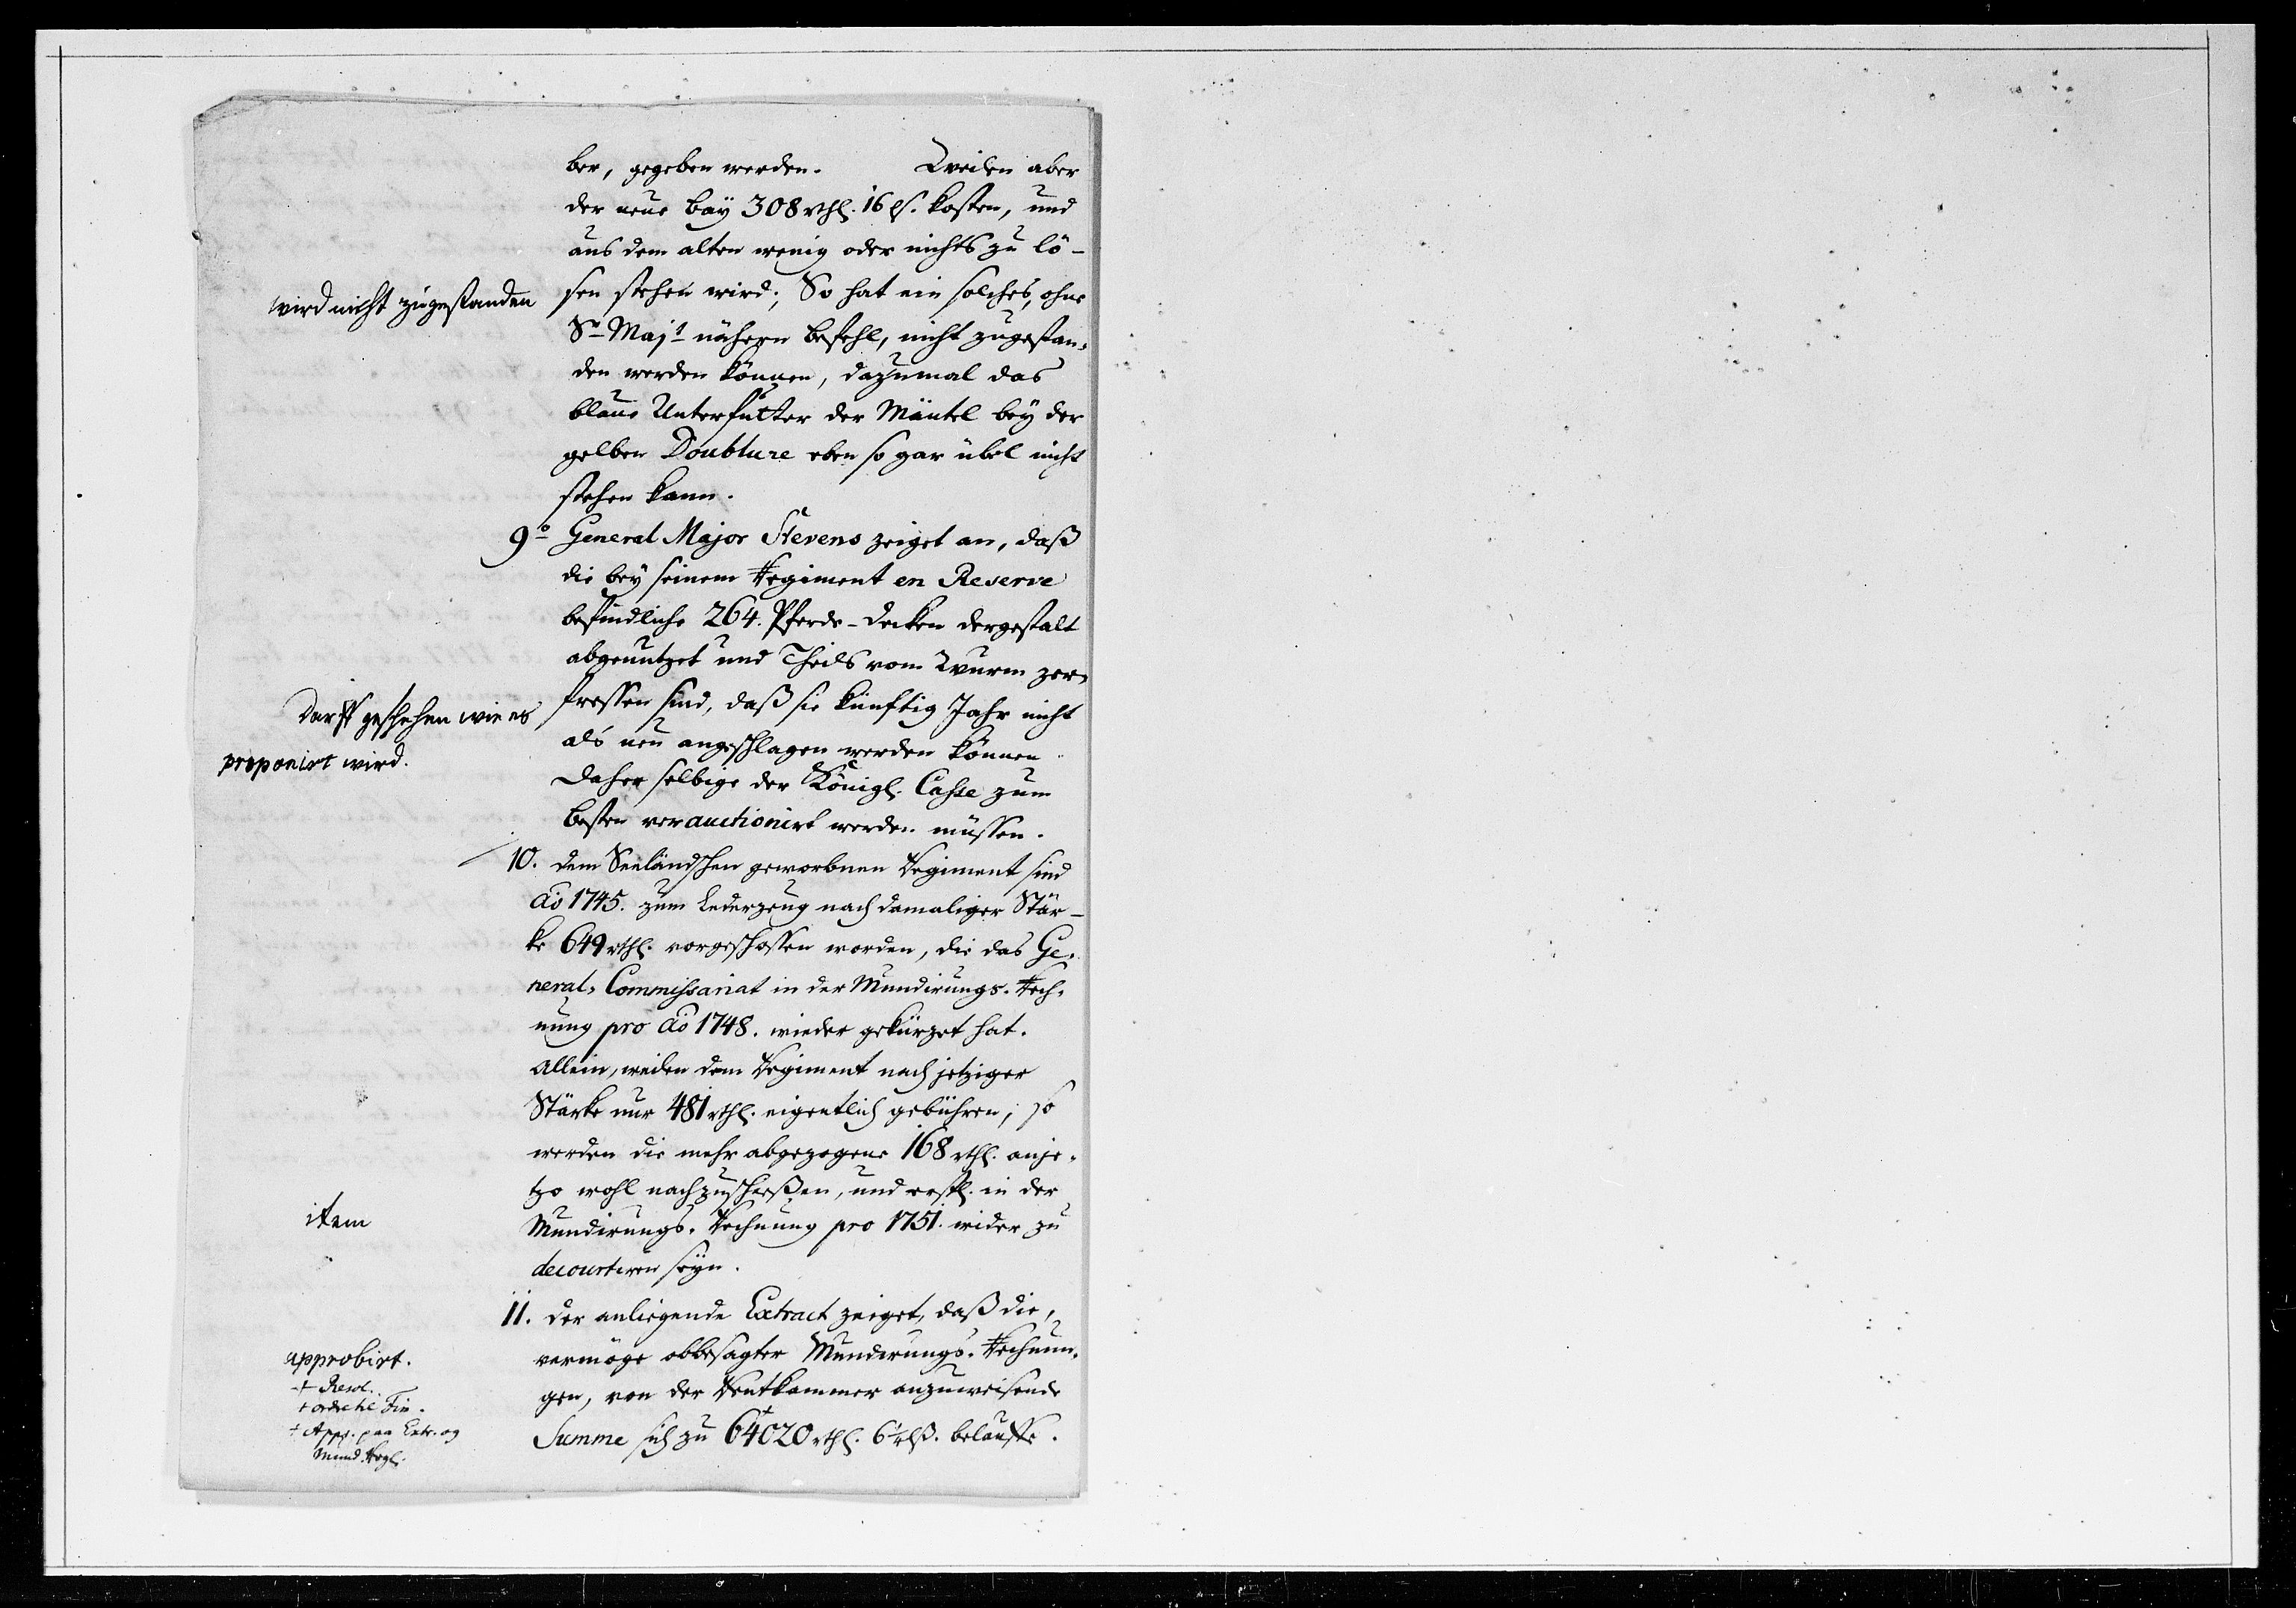 ber, gegeben werden. Weilen aber
der neue bay 308 rthl. 16 ls. kosten, und
aus dem alten wenig oder nichts zu lö-
sen stehen wird; So hat ein solches, ohne
Sr Majt nähern befehl, nicht zugestan-
den werden können, dazumal das
blaue Unterfutter der Mäntel bey der
gelben Doublure eben so gar übel nicht
stehen kann.
wird nicht zugestanden
9o General Major Stevens zeiget an, daß
die bey seinem Regiment en Reserve
befindliche 264. Pferde-decken dergestalt
abgenutzet und Theils vom Wurm zer-
fressen sind, daß sie künftig Jahr nicht
als neu angeschlagen werden können
daher selbige der Königl. Casse zum
besten verauctionirt werden müssen.
Darff geschehen wie es
proponirt wird.
10. dem Seeländschen geworbnen Regiment sind
Ao 1745. zum Lederzeug nach damaliger Stär-
ke 649 rthl. vorgeschossen worden, die das Ge-
neral-Commissariat in der Mundirungs-Rech-
nung pro Ao 1748. wieder gekürzet hat.
Allein, weilen dem Regiment nach jetziger
Stärke nur 481 rthl. eigentlich gebühren; so
werden die mehr abgezogene 168 rthl. anje-
tzo wohl nachzuschießen, und resp. in der
Mundirungs-Rechnung pro 1751. wider zu
decourtiren seyn.
item
11. der anliegende Extract zeiget, daß die,
vermöge obbesagter Mundirungs-Rechnun-
gen, von der Rentkammer anzuweisende
Summe sich zu 64020 rthl. 6 1/4 lß. belauffe.
approbirt.
+ Resol.
+ ordre til Fin.
+ App. paa Extr. og
Mund. Regl.